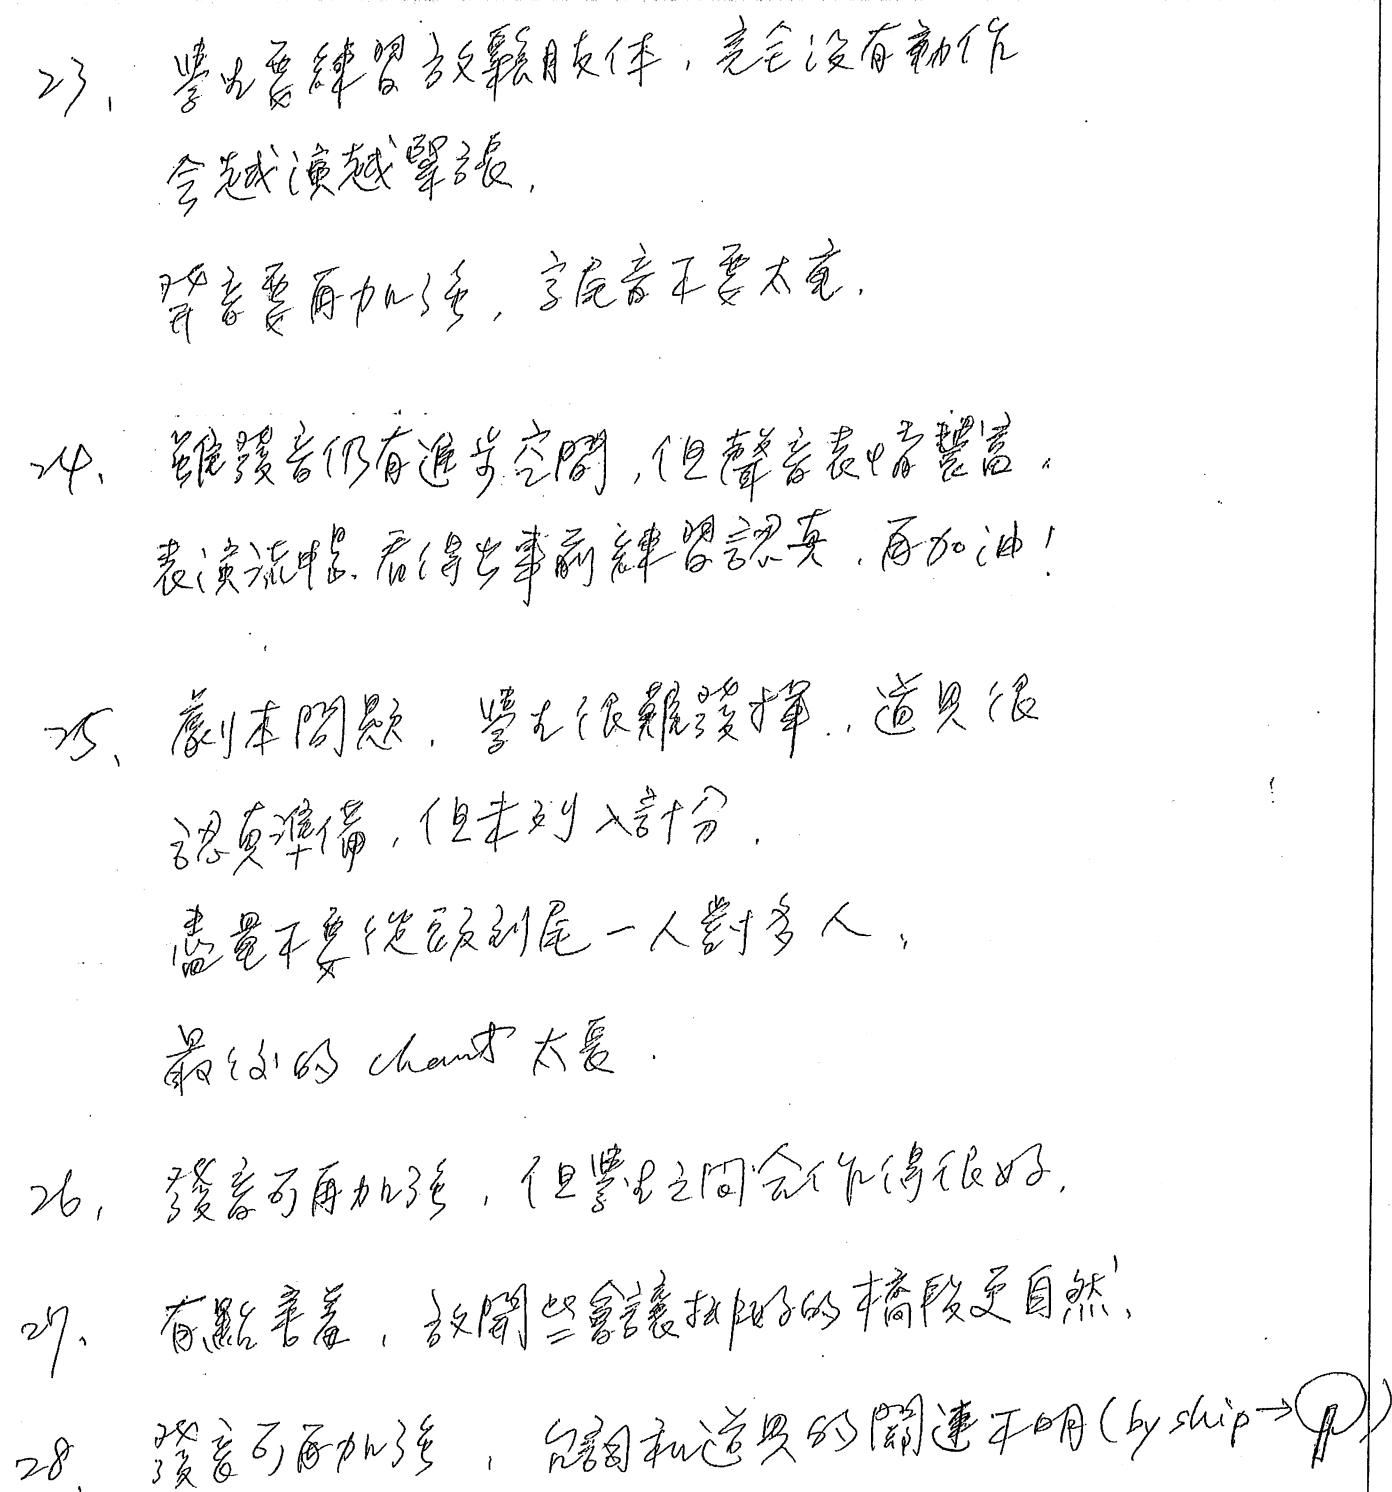 23. 學生要練習放鬆肢体，完全沒有動作
会越演越緊張.
發音要再加強，字尾音不要太重.
24. 雖發音仍有進步空間，但聲音表情豐富.
表演流暢. 看得出事前練習認真，再加油！
25. 劇本問題，學生很難發揮，道具很
認真準備，但未列入計分.
盡量不要從頭到尾一人對多人.
最後的 chant 太長.
26. 發音可再加強，但學生之間合作得很好.
27. 有點害羞，放開些會讓排好的橋段更自然.
28. 發音可再加強，台詞和道具的關連不明(by ship→ )